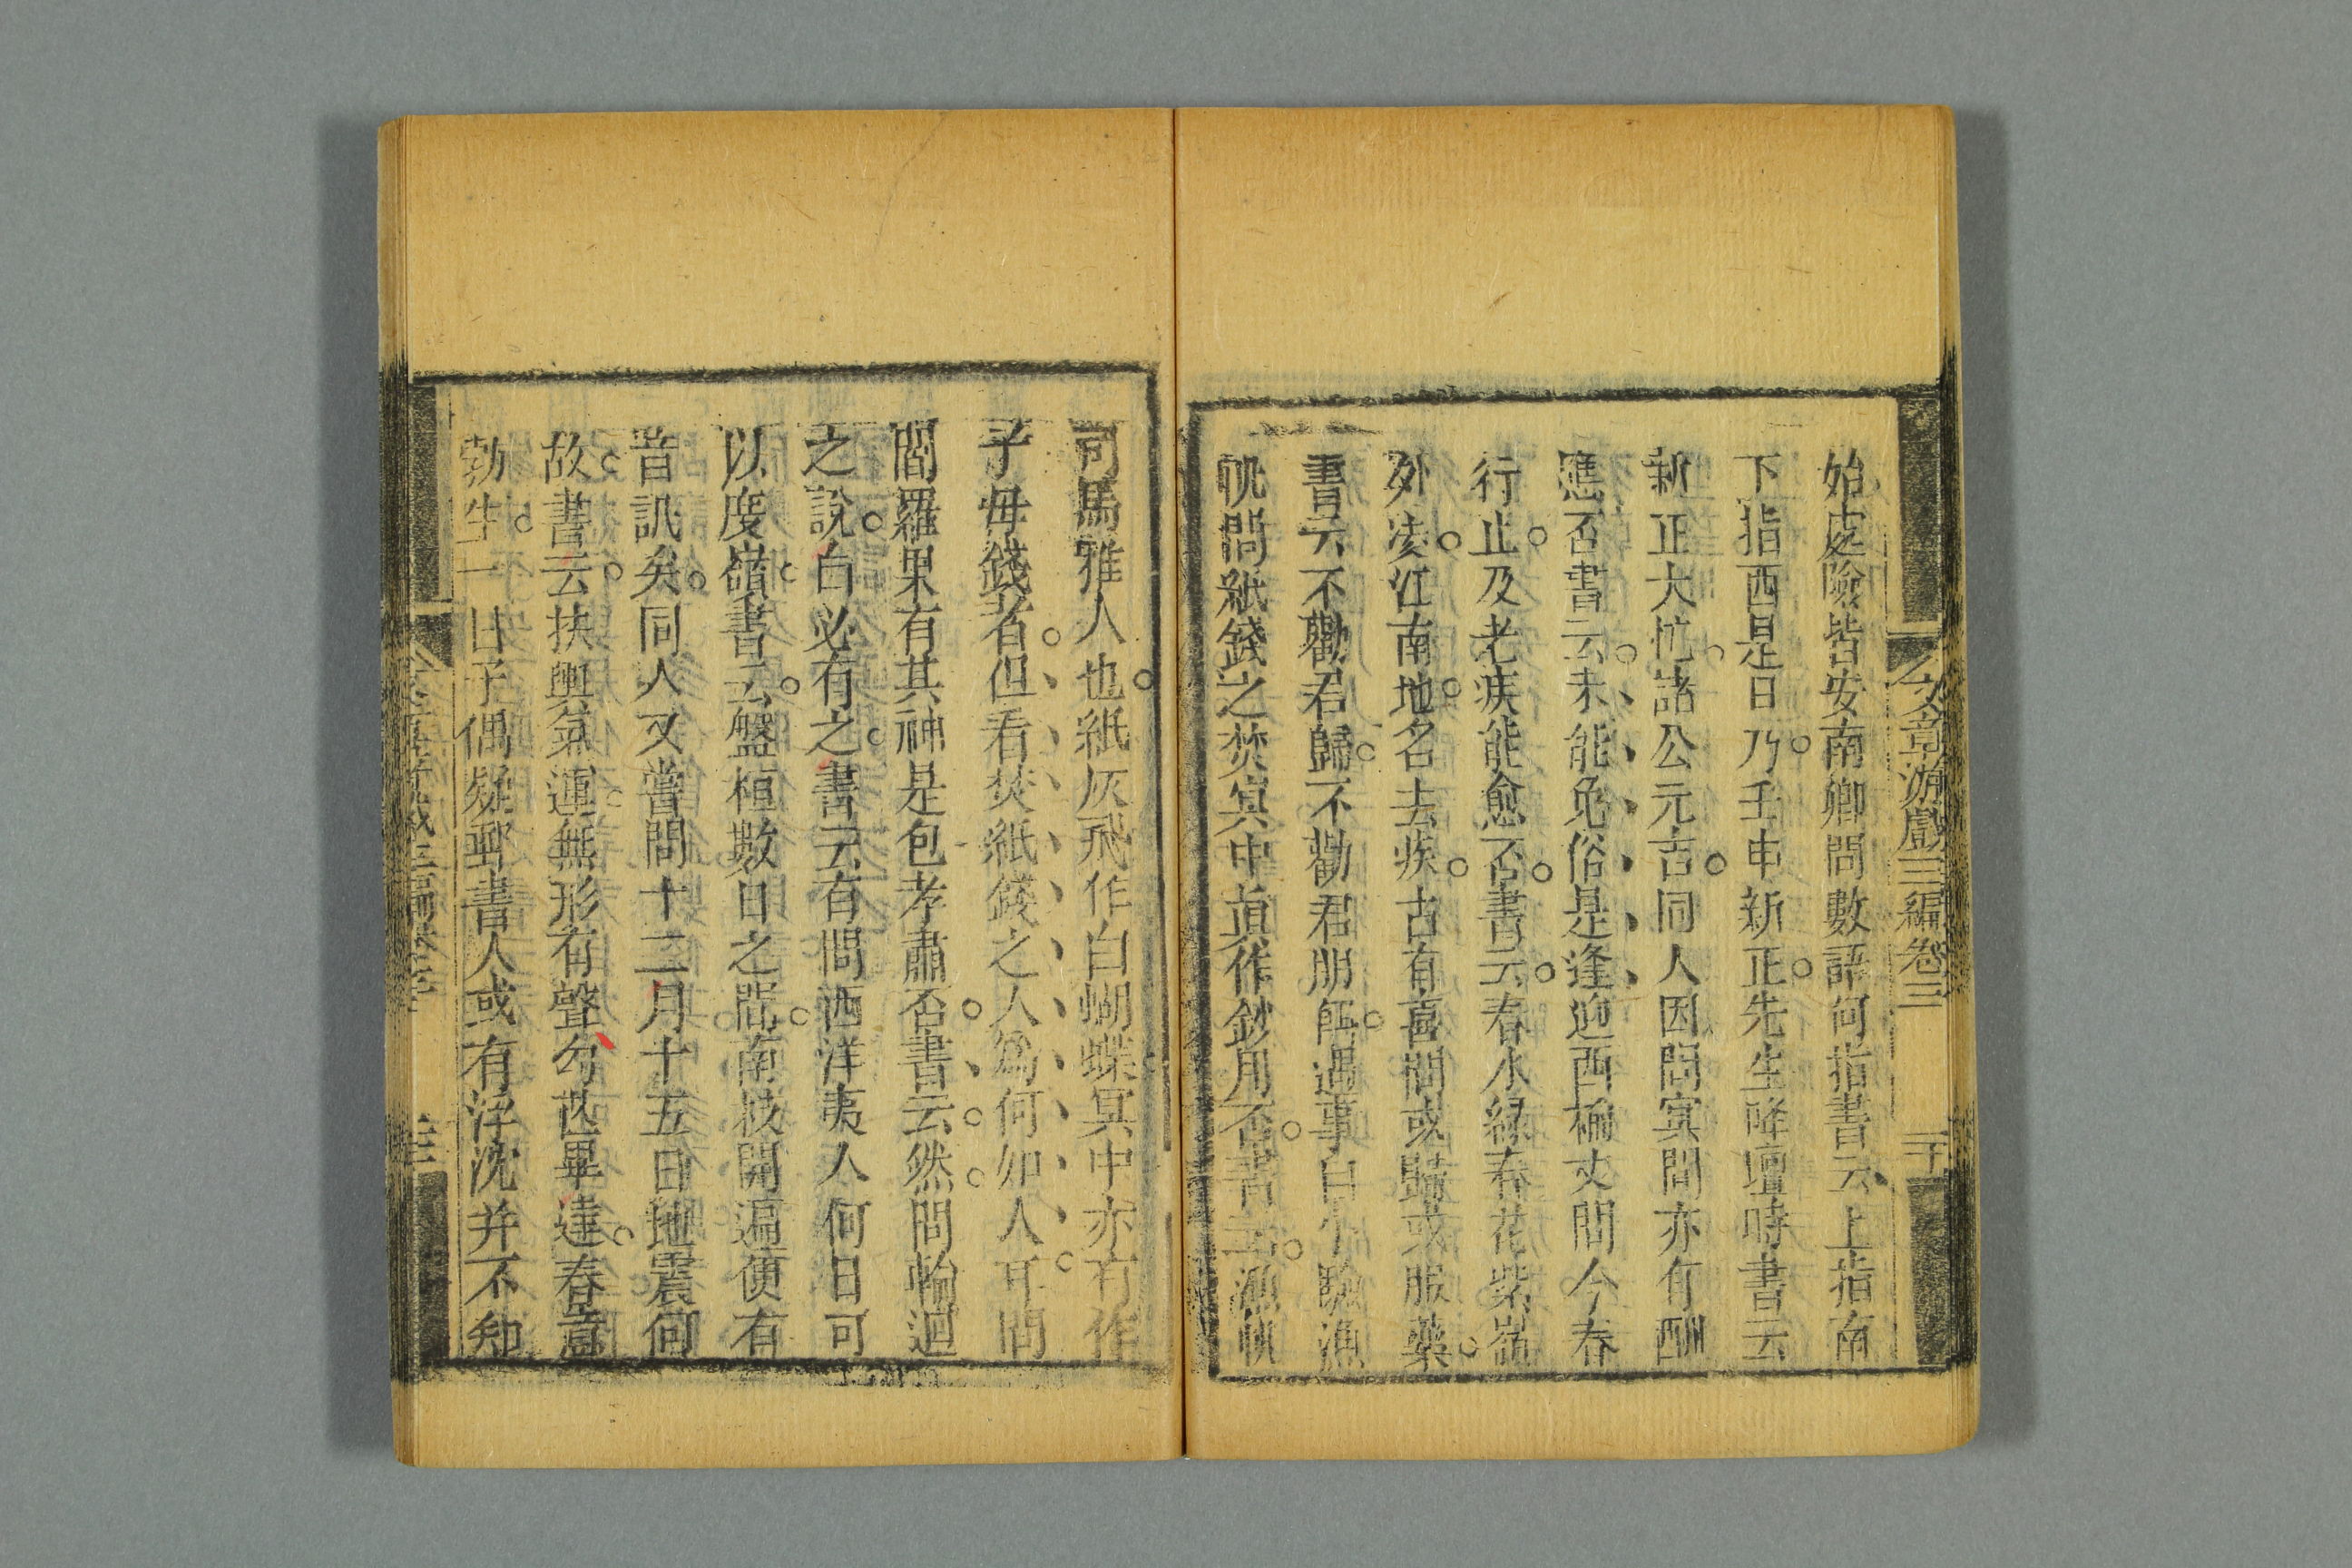 文章游戲三編卷三
二十
始處險皆安南卿問數語何指書云上指南
下指西是日乃壬申新正先生降壇時書云
新正大忙諸公元吉同人因問冥間亦有酬
應否書云未能免俗是逢迎西榆丈問今春
行止及老疾能愈否書云春水綠春花紫嶺
外凌江南地名去疾古有喜間或歸或服藥
書云不勸君歸不勸君服餌遇事白小驗漁
帆問紙錢之焚冥中真作鈔用否書云漁帆
司馬雅人也紙灰飛作白蝴蝶冥中亦有作
子母錢者但看焚紙錢之人為何如人耳問
閻羅果有其神是包孝肅否書云然問輪迴
之說白必有之書云有問西洋夷人何日可
以度嶺書云盤桓數日之間南枝開遍便有
音訊矣同人又嘗問十二月十五日地震何
故書云扶輿氣運無形有聲勾萌畢達春意
勃生一日予偶疑郵書人或有浮沈并不知